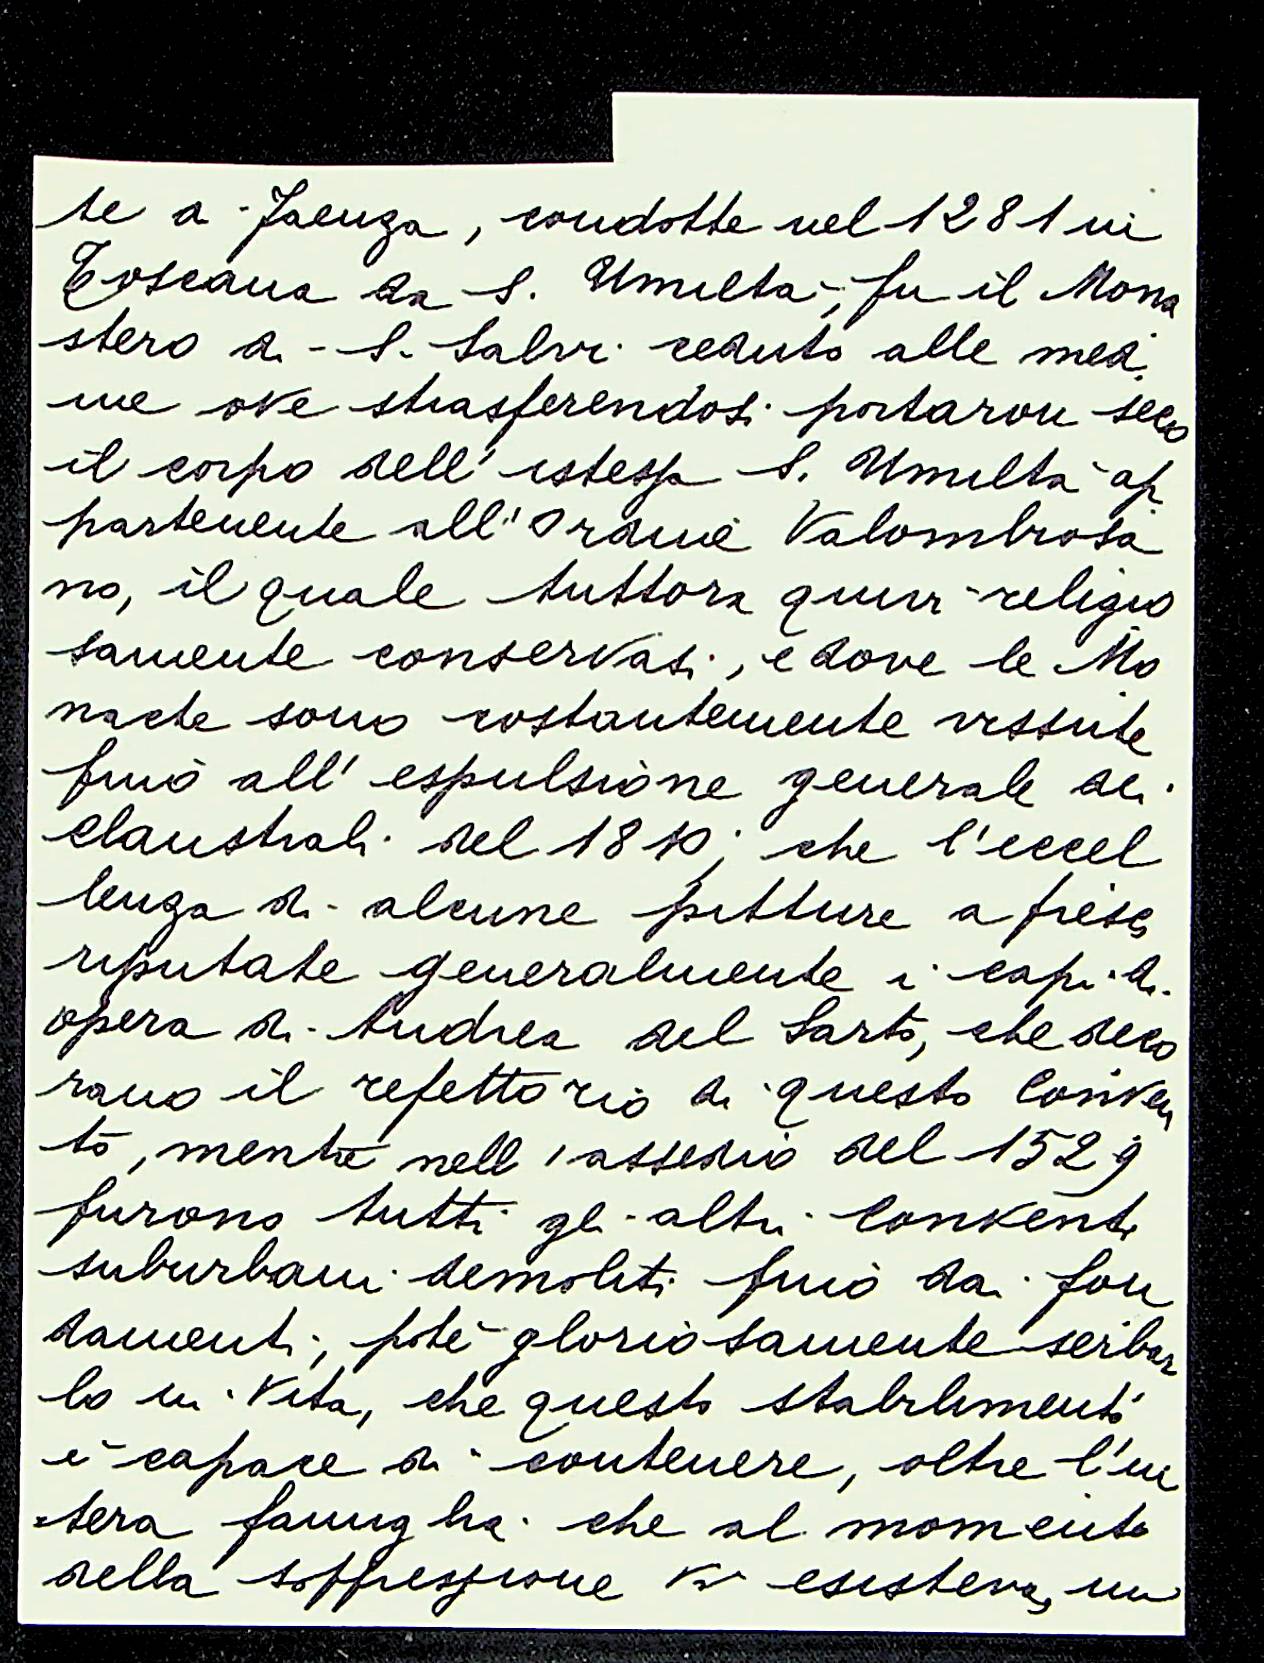 te a Faenza, condotte nel 1281 in
Toscana da S. Umiltà, fu il Mona
stero di S. Salvi ceduto alle med.
me ove strasferendosi portaron seco
il corpo dell' istessa S. Umiltà ap
partenente all' Ordine Valombrosa
no, il quale tuttora quivi religio
samente conservasi, e dove le Mo
nache sono costantemente vissute
fino all' espulsione generale dei
claustrali del 1810; che l'eccel
lenza di alcune pitture a fresco
riputate generalmente i capi di
opera di Andrea del Sarto, che deco
rano il refettorio di questo Conven
to, mentre nell' assedio del 1529
furono tutti gli altri Conventi
suburbani demoliti fino dai fon
damenti, potè gloriosamente serbar
lo in vita, che questo stabilimento
è capace di contenere, oltre l'in
=tera famiglia che al momento
della soppressione vi esisteva, un